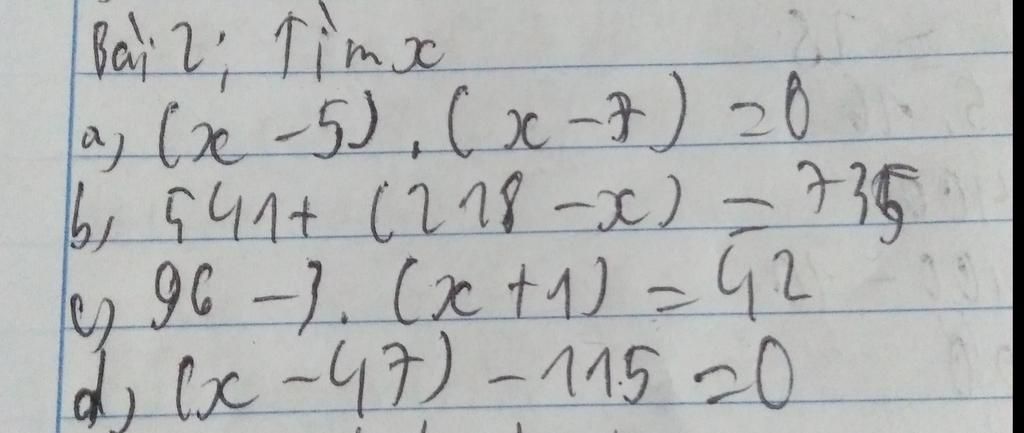 Bài 2; Tìm x
a, (x - 5) . (x - 7) = 0
b, 541 + (218 - x) = 735
c, 96 - 3. (x + 1) = 42
d, (x - 47) - 115 = 0